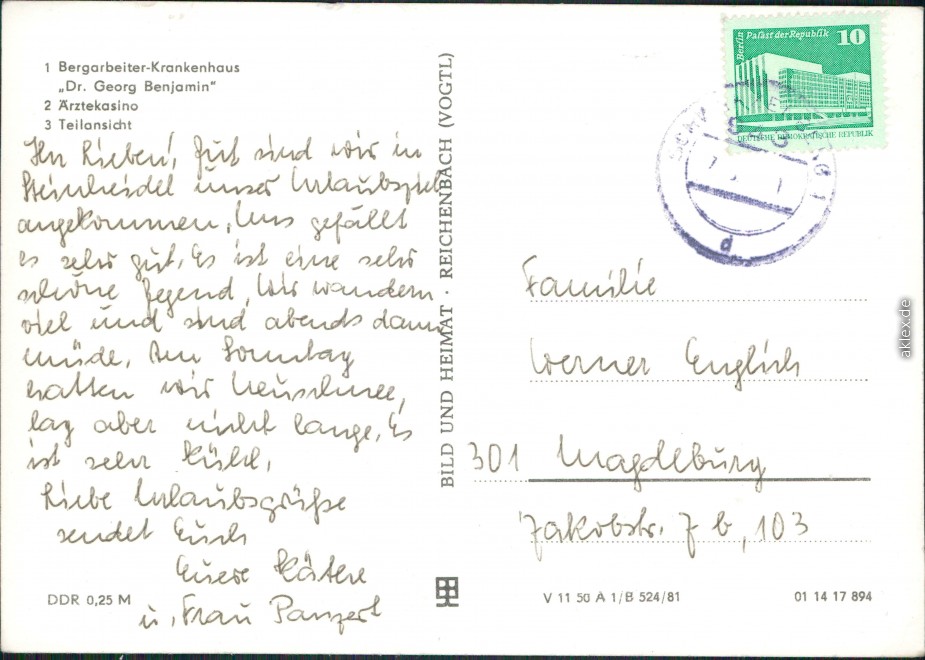 1 Bergarbeiter-Krankenhaus
„Dr. Georg Benjamin“
2 Ärztekasino
3 Teilansicht
Ihr Lieben! Gut sind wir in
Steinheidel unser Urlaubsziel
angekommen. Uns gefällt
es sehr gut. Es ist eine sehr
schöne Gegend, wir wandern
viel und sind abends dann
müde. Am Sonntag
hatten wir Neuschnee,
lag aber nicht lange. Es
ist sehr kühl.
Liebe Urlaubsgrüße
sendet Euch
Eure Käthe
u. Frau Panzert
DDR 0,25 M
BILD UND HEIMAT · REICHENBACH (VOGTL)
Berlin
Palast der Republik
10
DEUTSCHE DEMOKRATISCHE REPUBLIK
d
Familie
Werner Englich
301 Magdeburg
Jakobstr. 7 b, 103
V 11 50 A 1/B 524/81
01 14 17 894
aklex.de